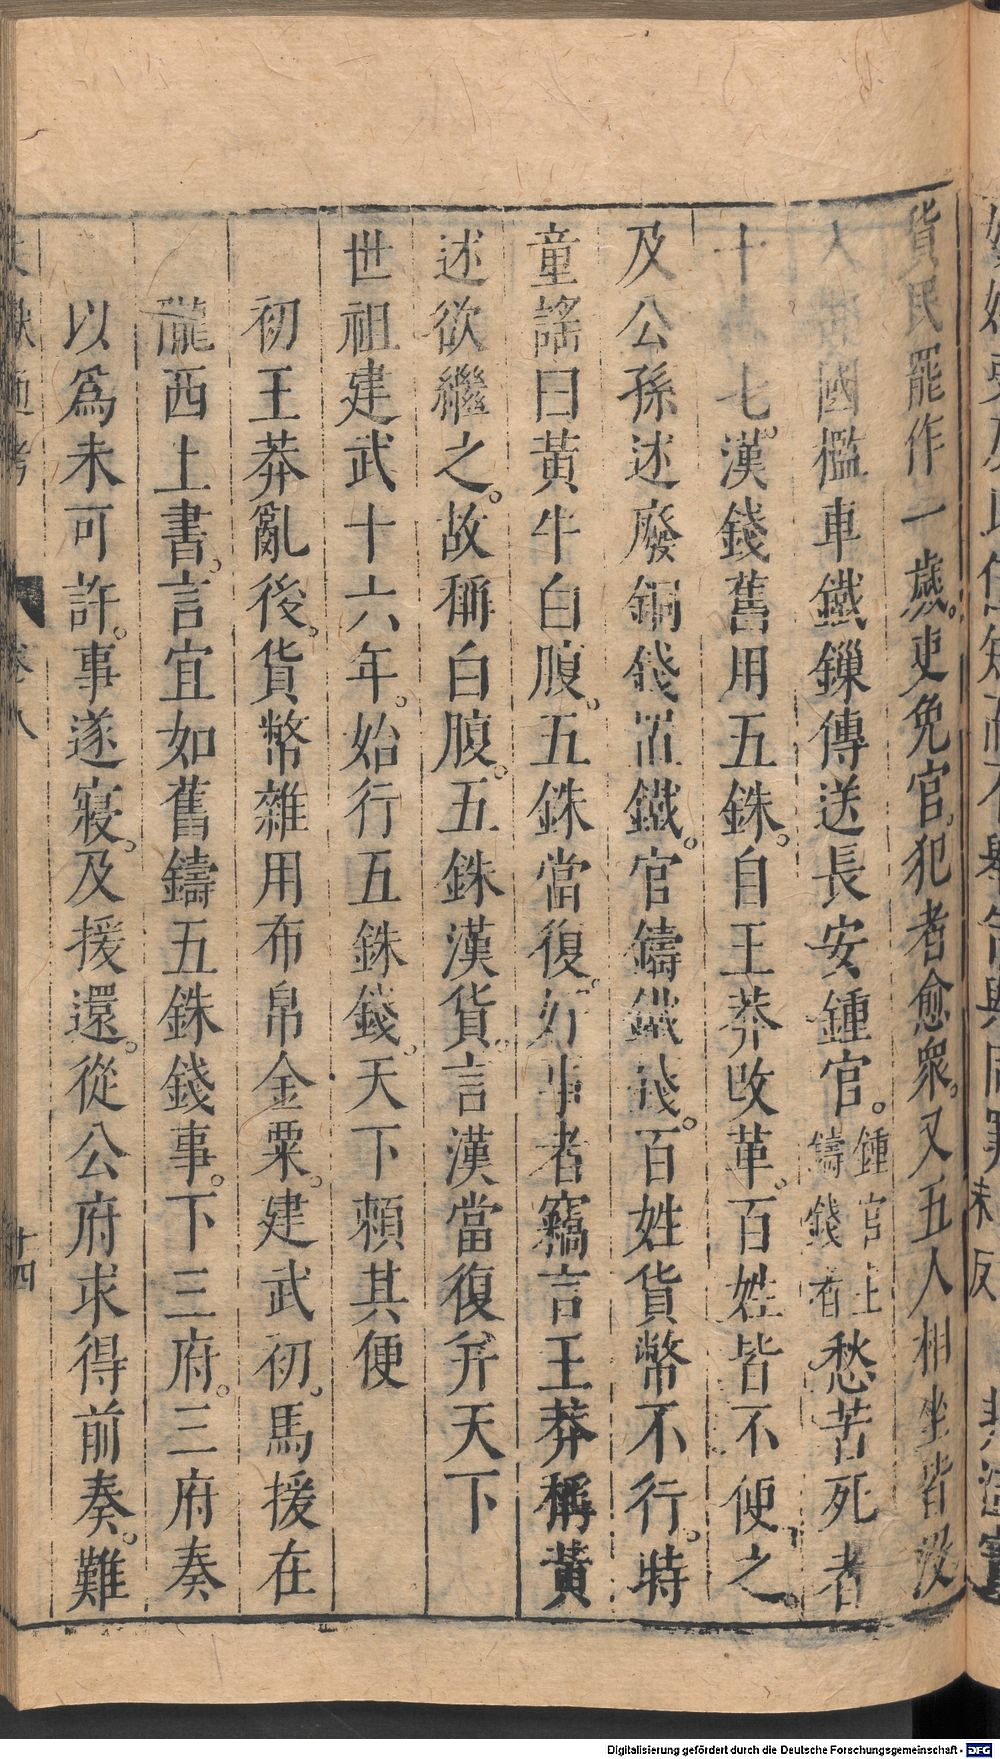 貨民罷作一歲。吏免官。犯者愈衆。又五人相坐皆沒
入 國檻車鐵鏁傳送長安鍾官。鍾官主鑄錢者愁苦死者
十 七。漢錢舊用五銖。自王莽改革。百姓皆不便之。
及公孫述廢銅錢置鐵。官鑄鐵錢。百姓貨幣不行。時
童謠曰黃牛白腹。五銖當復。好事者竊言王莽稱黃
述欲繼之。故稱白腹。五銖漢貨。言漢當復幷天下
世祖建武十六年。始行五銖錢。天下賴其便
初王莽亂後。貨幣雜用布帛金粟。建武初。馬援在
隴西上書。言宜如舊鑄五銖錢事。下三府。三府奏
以爲未可許。事遂寢。及援還。從公府求得前奏。難
卷八
十四
Digitalisierung gefördert durch die Deutsche Forschungsgemeinschaft - DFG